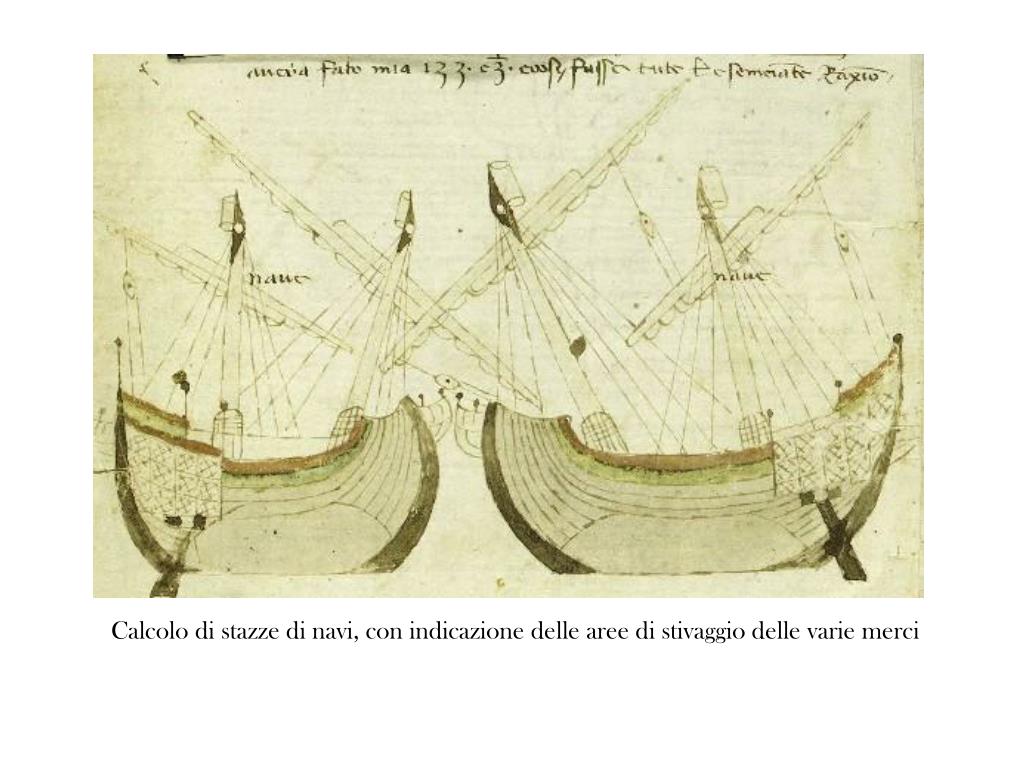 avera fato mia 133 · e 3 · coosi fusse tute le semeiate raxio
nave
nave
Calcolo di stazze di navi, con indicazione delle aree di stivaggio delle varie merci